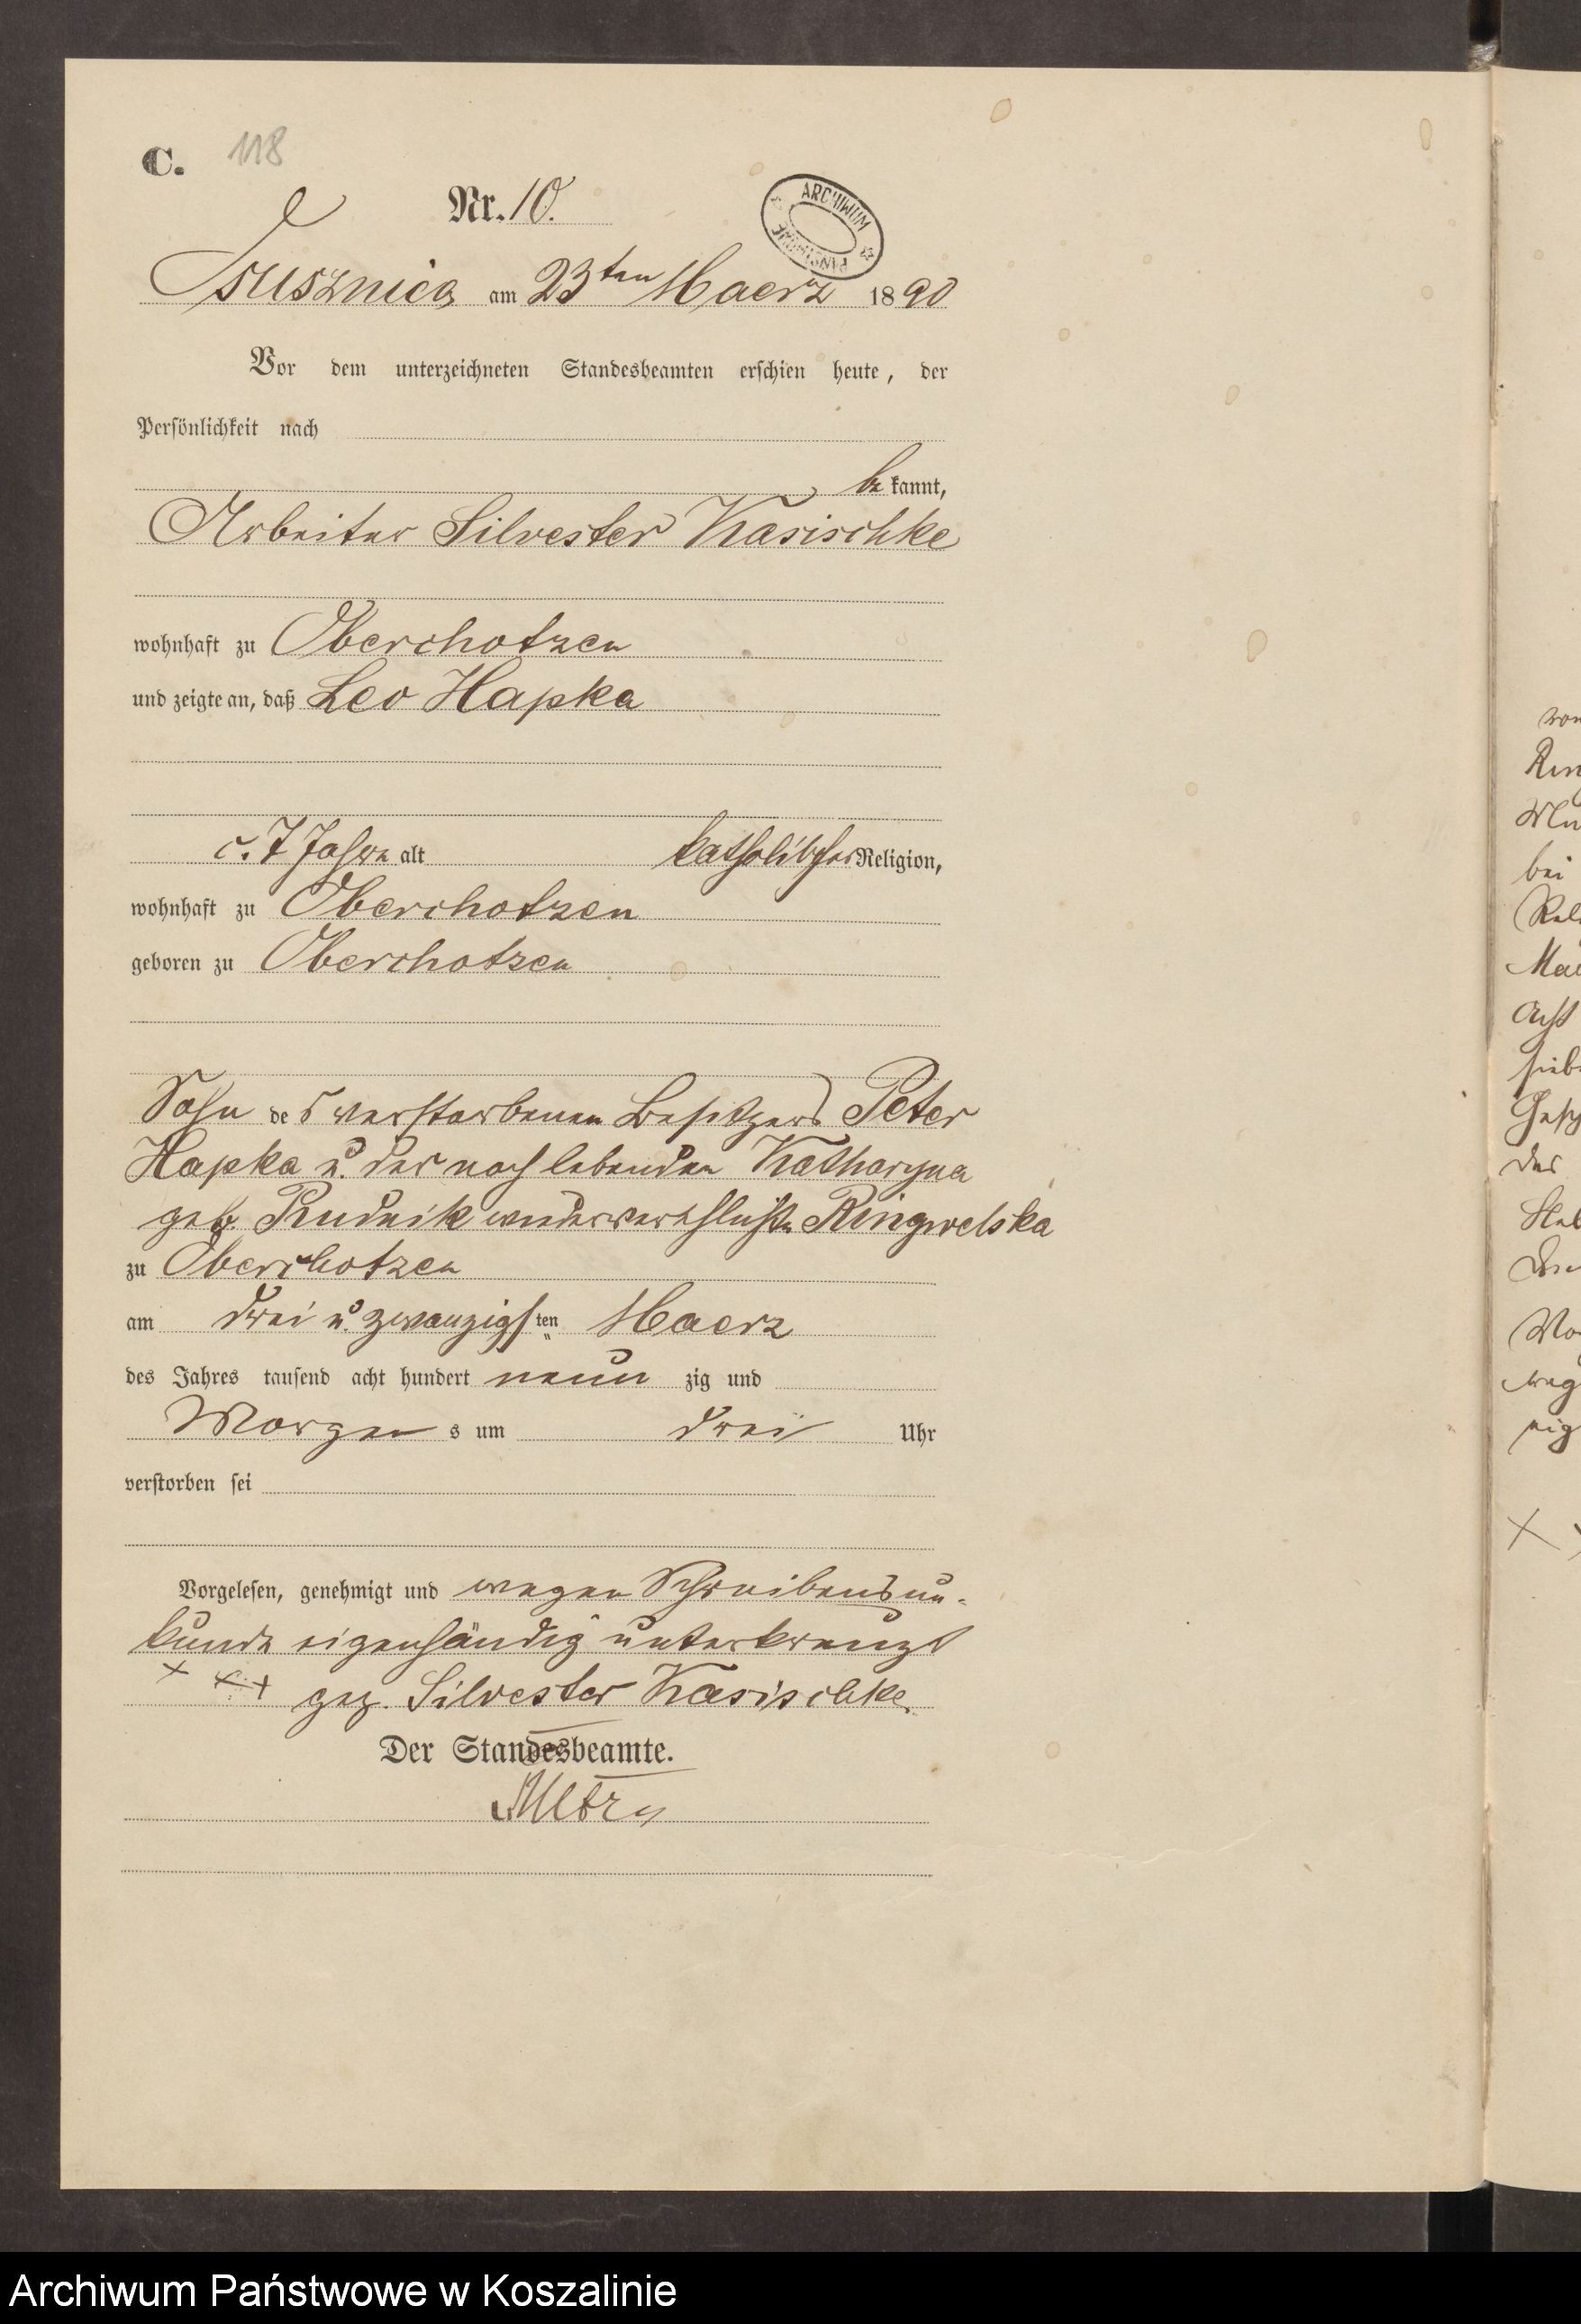 C. 118
Nr. 10.
ARCHIWUM PAŃSTWOWE
am 23ten Maerz 1890
Vor dem unterzeichneten Standesbeamten erschien heute, der
Persönlichkeit nach
be kannt,
Arbeiter Silvester Kasischke
wohnhaft zu Oberchotzen
und zeigte an, daß Leo Hapka
c. 7 Jahre alt katholischer Religion,
wohnhaft zu Oberchotzen
geboren zu Oberchotzen
Sohn des verstorbenen Besitzers Peter
Hapka u. der noch lebenden Katharyna
geb. Rudnik wiederverehlichte Ringwelska
zu Oberchotzen
am drei u. zwanzigsten Maerz
des Jahres tausend acht hundert neun zig und
Morgen s um drei Uhr
verstorben sei
Vorgelesen, genehmigt und wegen Schreibensun-
kunde eigenhändig unterkreuzt
+ + + gez. Silvester Kasischke.
Der Standesbeamte.
von
bei
der
Archiwum Państwowe w Koszalinie